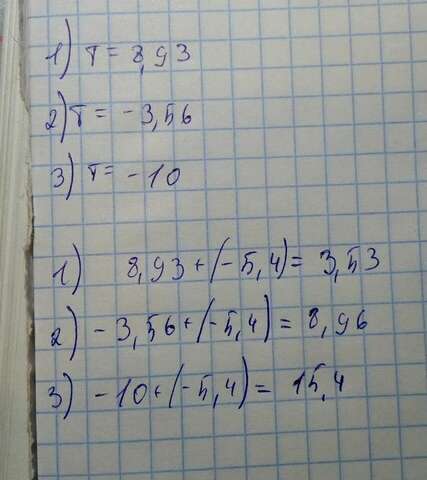 1) т = 8,93
2) т = -3,56
3) т = -10
1) 8,93+(-5,4)= 3,53
2) -3,56+(-5,4) = 8,96
3) -10+(-5,4) = 15,4